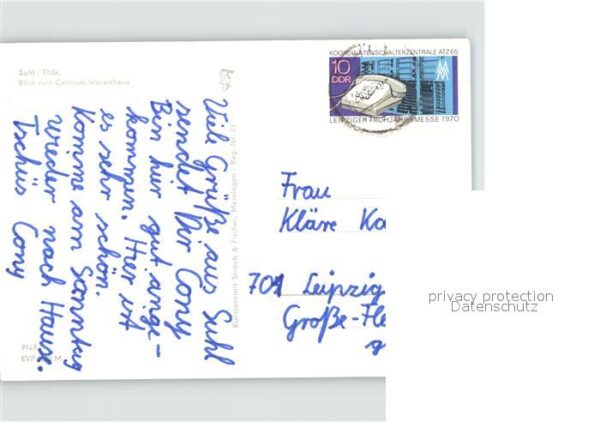 Suhl Thür.
Blick zum Centrum-Warenhaus
KOORDINATENSCHALTERZENTRALE ATZ 65
10
DDR
MM
LEIPZIGER FRÜHJAHRSMESSE 1970
Viele Grüße aus Suhl
sendet Dir Cony
Bin hier gut ange-
kommen. Hier ist
es sehr schön.
Komme am Sonntag
wieder nach Hause.
Tschüs Cony
Kunstanstalt Straub & Fischer, Meiningen
Frau
Kläre Ka
701 Leipzig
Große-Fle
privacy protection
Datenschutz
EVP M